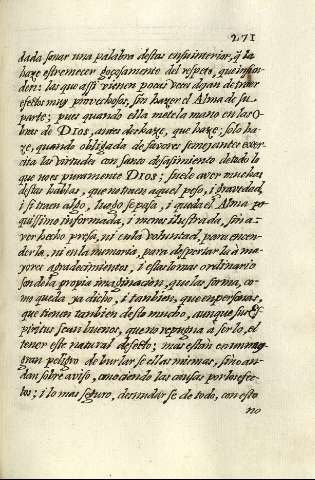 271
dada sonar una palabra destas en su interior, q̃ la
haze estremecer goçosamente del respeto, que infun-
den: las que assi vienen pocas veces dejan de traer
efectos muy provechosos, sin hazer el Alma de su
parte; pues quando ella mete la mano en las O-
bras de DIOS, antes deshaze, que haze; solo ha-
ze, quando obligada de favores semejantes exer-
cita las virtudes con sano desasimiento de todo lo
que no es puramente DIOS; suele aver muchas
destas hablas, que no tienen aquel peso, i gravedad,
i si traen algo, luego se pasa, i queda el Alma po-
quissimo informada, i menos ilustrada, sin a-
ver hecho presa, ni en la voluntad, para encen-
derla, ni en la memoria, para despertarla à ma-
yores agradecimientos, i estas lo mas ordinario
son de la propia imaginacion, que las forma, co-
mo queda ya dicho, i tanbien, que en personas,
que tienen tanbien desto mucho, aunque sus Es-
piritus sean buenos, que no repugna à serlo, el
tener este natural defecto; mas estan en
gran peligro de burlarse ellas mismas, sino an-
dan sobre aviso, conociendo las causas por los efec-
tos; i lo mas seguro, desnudarse de todo, con esto
no